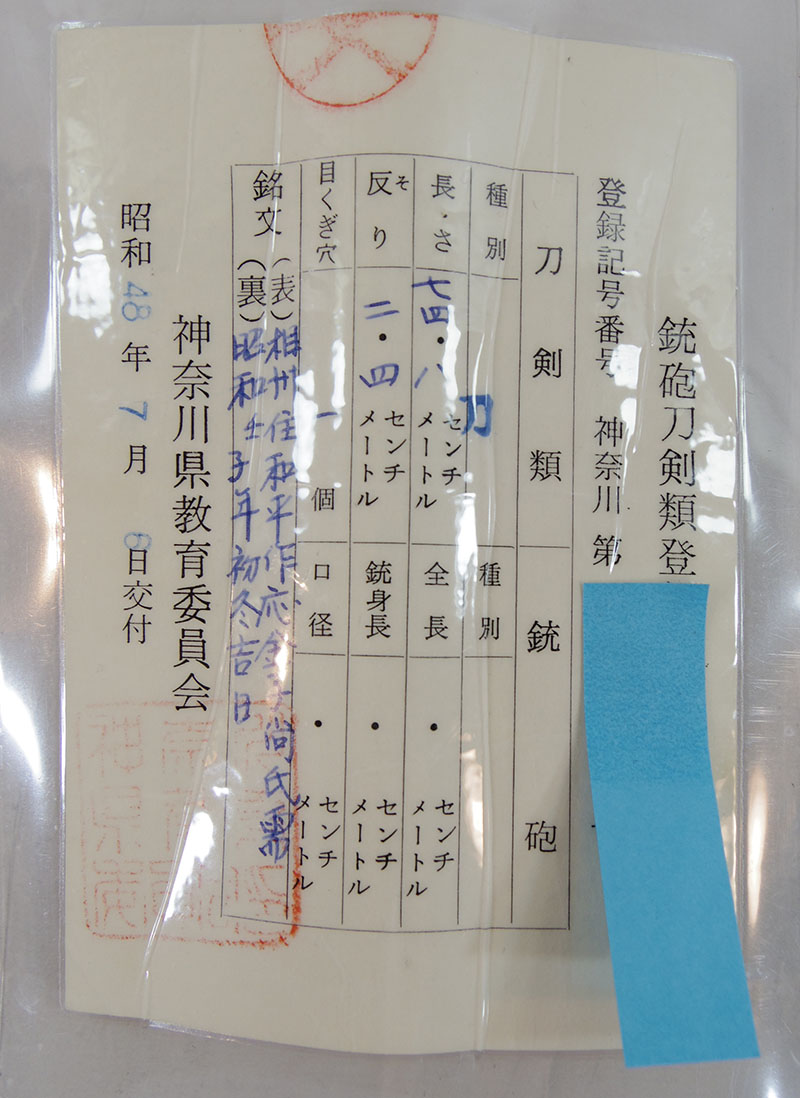 銃砲刀剣類登
登録記号番号 神奈川 第
刀剣類
銃砲
種別
刀
種別
長さ
七四・八 センチメートル
全長
・ センチメートル
反り
そ
二・四 センチメートル
銃身長
・ センチメートル
目くぎ穴
一個
口径
・ センチメートル
銘文 (表) 相州住和平作応金子尚氏需
(裏) 昭和壬子年初冬吉日
神奈川県教育委員会
昭和48年7月6日交付